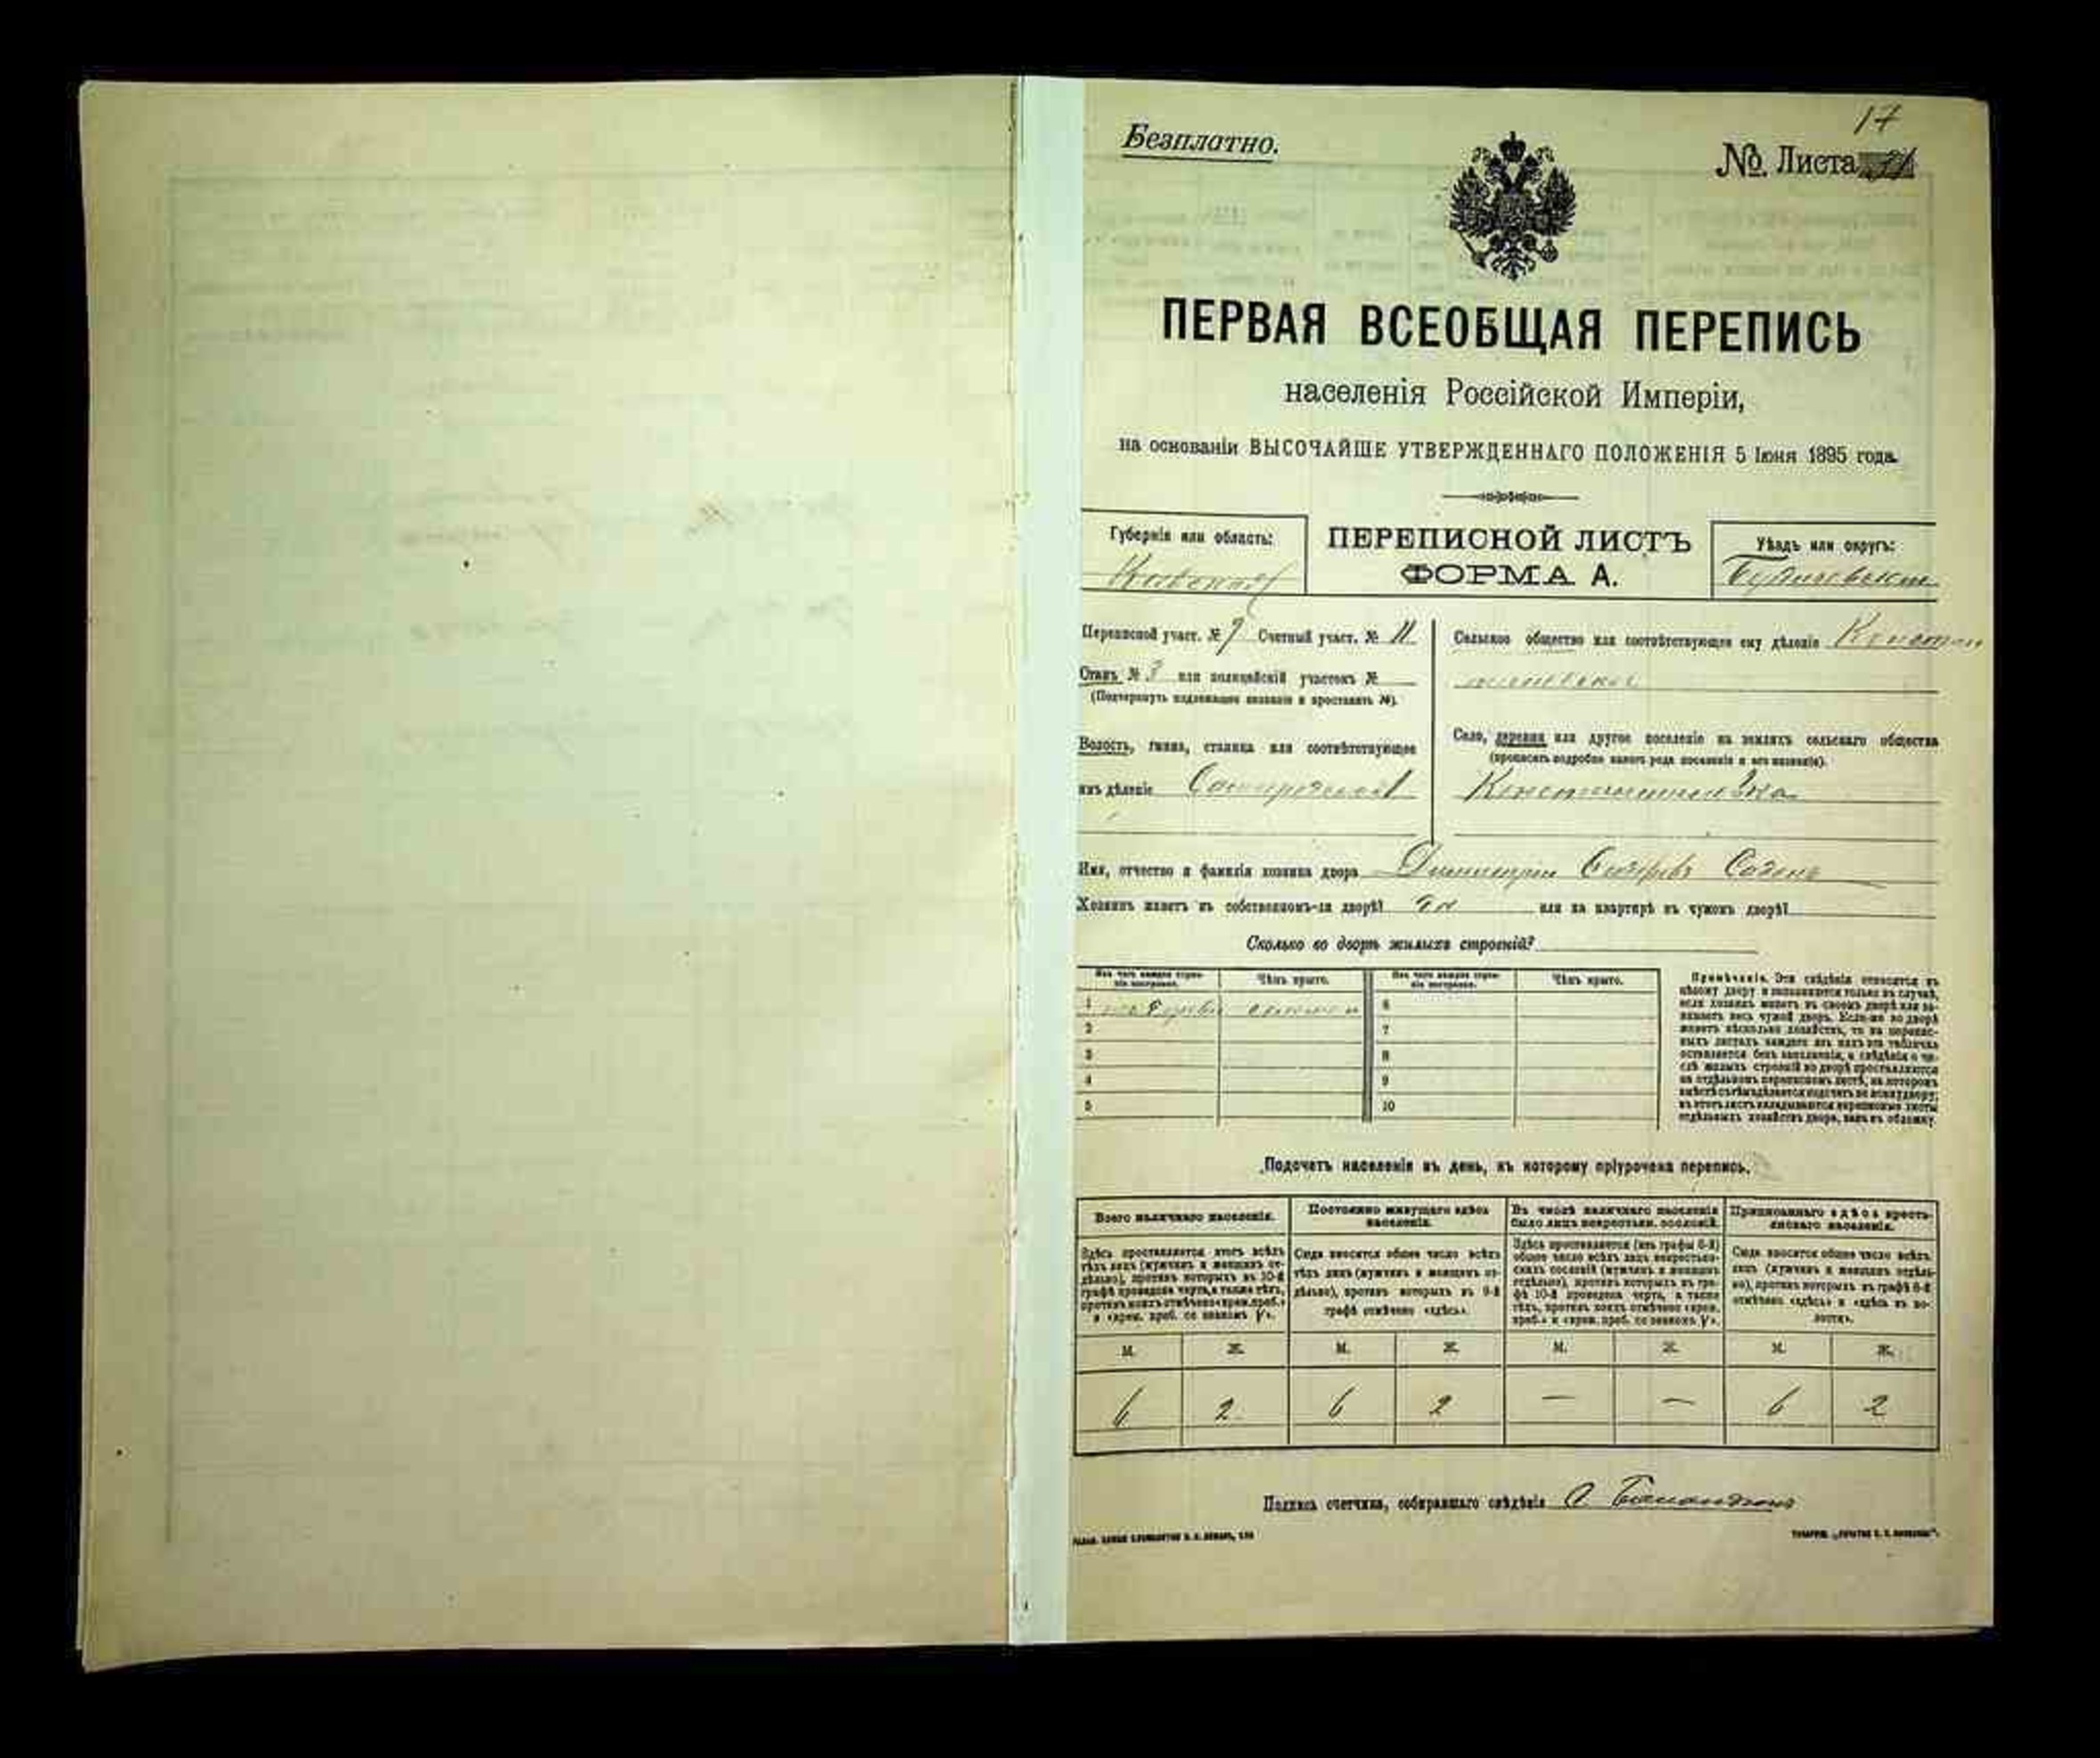 17
Безплатно.
№. Листа
ПЕРВАЯ ВСЕОБЩАЯ ПЕРЕПИСЬ
населенія Россійской Имперіи,
на основаніи ВЫСОЧАЙШЕ УТВЕРЖДЕННАГО ПОЛОЖЕНІЯ 5 Іюня 1895 года.
Губернія или область:
ПЕРЕПИСНОЙ ЛИСТЪ
ФОРМА А.
Уѣздъ или округъ:
Переписной участ. № 9 Счетный участ. № 11
Станъ № 3 или полицейскій участокъ №
(Подчеркнуть надлежащее названіе и проставить №).
Волость, гмина, станица или соотвѣтствующее
имъ дѣленіе
Сельское общество или соотвѣтствующее ему дѣленіе
Село, деревня или другое поселеніе на земляхъ сельскаго общества
(прописать подробно какого рода поселеніе и его названіе).
Константиновка
Имя, отчество и фамилія хозяина двора
Хозяинъ живетъ въ собственномъ-ли дворѣ? да или на квартирѣ въ чужомъ дворѣ?
Сколько во дворѣ жилыхъ строеній?
Изъ чего каждое строеніе построено. Чѣмъ крыто. Изъ чего каждое строеніе построено. Чѣмъ крыто.
1 6
2 7
3 8
4 9
5 10
Примѣчаніе. Эти свѣдѣнія относятся къ
цѣлому двору и заполняются только въ случаѣ,
если хозяинъ живетъ въ своемъ дворѣ или за-
нимаетъ весь чужой дворъ. Если-же во дворѣ
живетъ нѣсколько хозяйствъ, то на перепис-
ныхъ листахъ каждаго изъ нихъ эта табличка
оставляется безъ заполненія, а свѣдѣнія о чи-
слѣ жилыхъ строеній во дворѣ проставляются
на отдѣльномъ переписномъ листѣ, на которомъ
вмѣстѣ съ тѣмъ дѣлается подсчетъ по всему двору;
въ этотъ листъ вкладываются переписные листы
отдѣльныхъ хозяйствъ двора, какъ въ обложку.
Подсчетъ населенія въ день, къ которому пріурочена перепись.
Всего наличнаго населенія.
Здѣсь проставляется итогъ всѣхъ
тѣхъ лицъ (мужчинъ и женщинъ от-
дѣльно), противъ которыхъ въ 10-й
графѣ проведена черта, а также тѣхъ,
противъ коихъ отмѣчено «врем. преб.»
и «врем. преб. со знакомъ V».
Постоянно живущаго здѣсь
населенія.
Сюда вносится общее число всѣхъ
тѣхъ лицъ (мужчинъ и женщинъ от-
дѣльно), противъ которыхъ въ 9-й
графѣ отмѣчено «здѣсь».
Въ числѣ наличнаго населенія
было лицъ некрестьян. сословій.
Здѣсь проставляется (изъ графы 6-й)
общее число всѣхъ лицъ некрестьян-
скихъ сословій (мужчинъ и женщинъ
отдѣльно), противъ которыхъ въ гра-
фѣ 10-й проведена черта, а также
тѣхъ, противъ коихъ отмѣчено «врем.
преб.» и «врем. преб. со знакомъ V».
Приписаннаго здѣсь кресть-
янскаго населенія.
Сюда вносится общее число всѣхъ
лицъ (мужчинъ и женщинъ отдѣль-
но), противъ которыхъ въ графѣ 8-й
отмѣчено «здѣсь» и «здѣсь въ во-
лости».
М. Ж. М. Ж. М. Ж. М. Ж.
6 2 6 2 — — 6 2
Подпись счетчика, собиравшаго свѣдѣнія